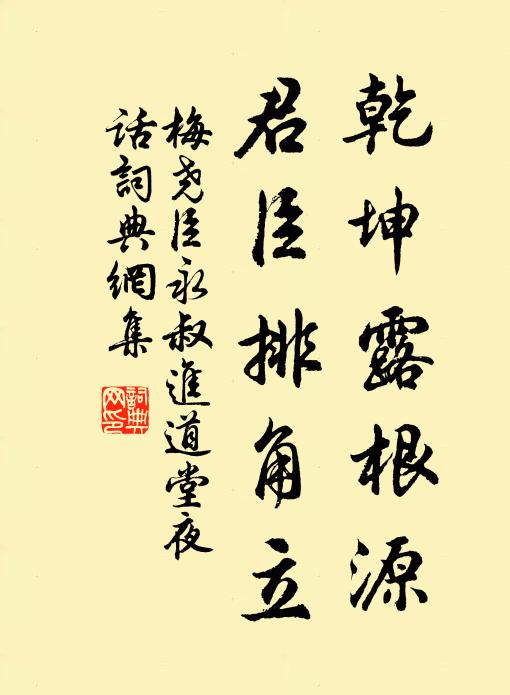 乾坤露根源
君臣排角立
梅尧臣永叔進道堂夜
话詞典網集
詞典
网印